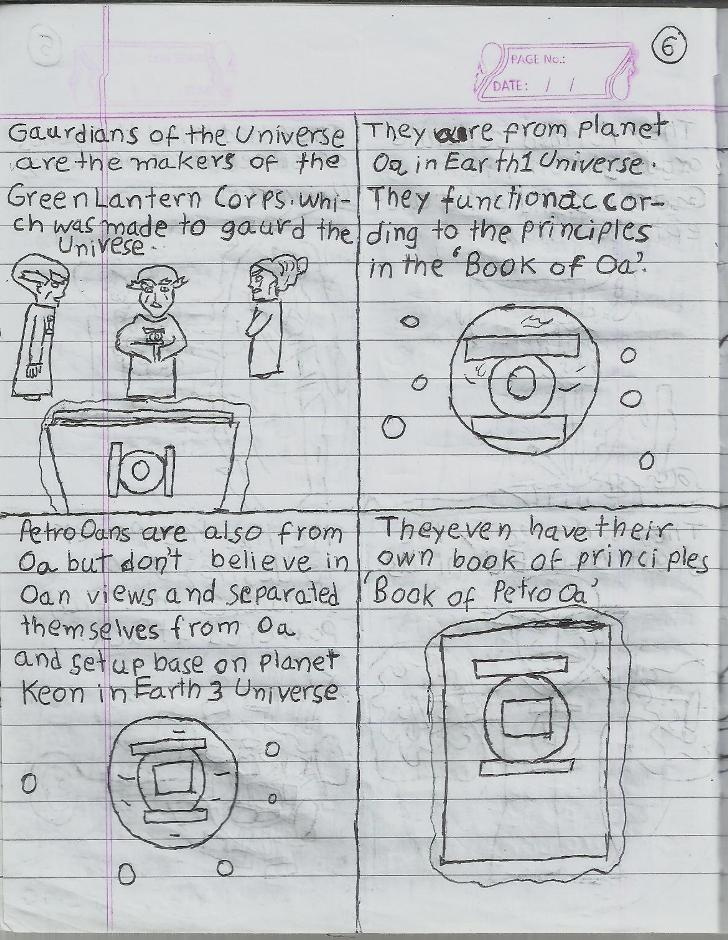 6
PAGE No.:
DATE: / /
Gaurdians of the Universe
are the makers of the
Green Lantern Corps. whi-
ch was made to gaurd the
Univese.
They are from planet
Oa in Earth1 Universe.
They function accor-
ding to the principles
in the 'Book of Oa'.
Petro Oans are also from
Oa but don't believe in
Oan views and separated
themselves from Oa
and set up base on planet
Keon in Earth 3 Universe
They even have their
own book of principles
'Book of Petro Oa'